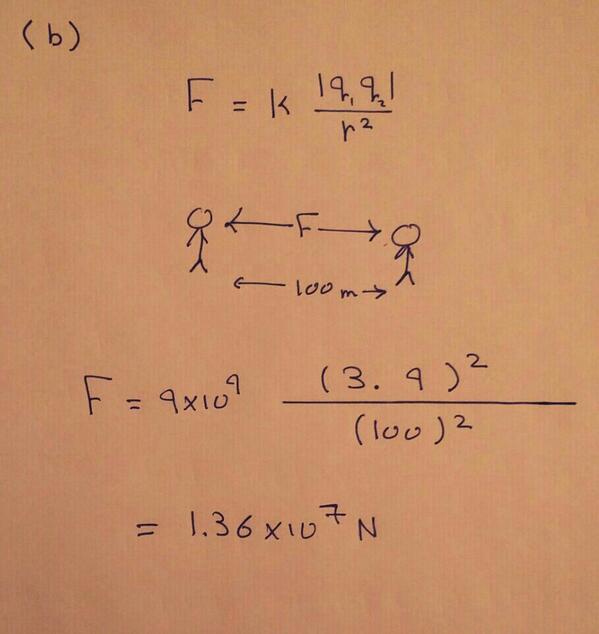 (b)
F = k |q₁ q₂| / r²
← F →
← 100 m →
F = 9×10⁹ (3.9)² / (100)²
= 1.36×10⁷ N